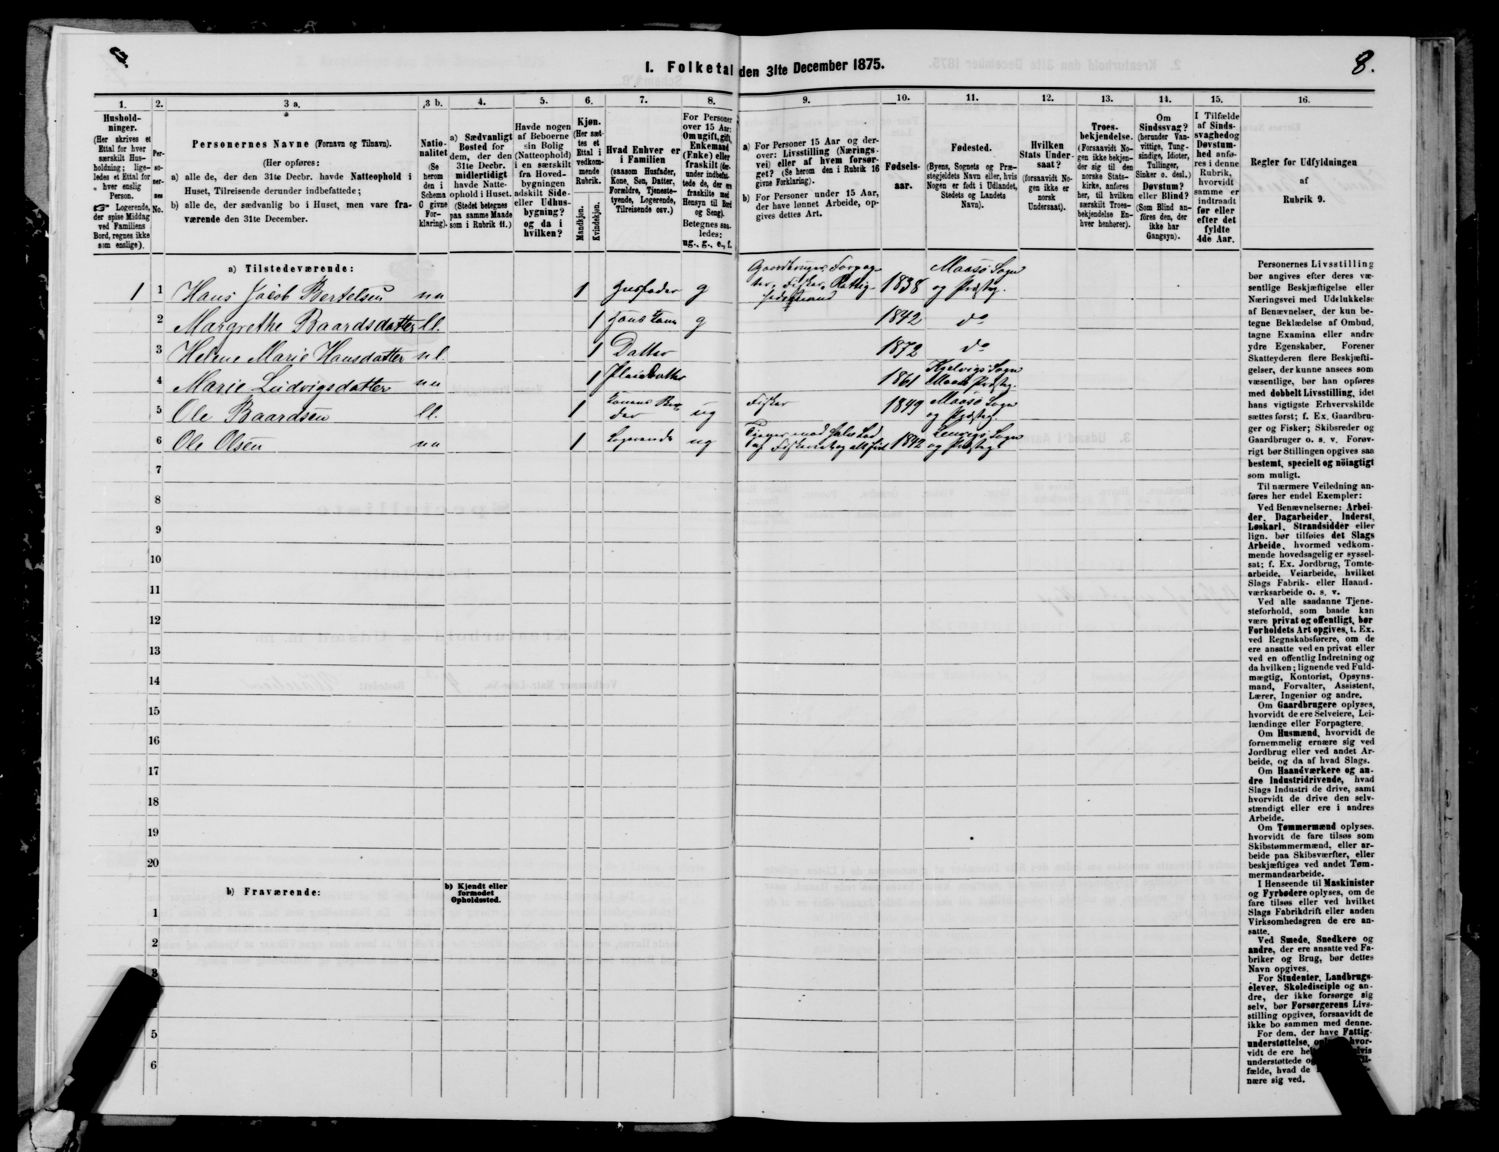 8.
I. Folketal den 31te December 1875.
1.
Husholdninger.
(Her skrives et Ettal for hver særskilt Husholdning; ligeledes et Ettal for hver enslig Person.
Logerende, der spise Middag ved Familiens Bord, regnes ikke som enslige).
2.
Personernes No.
3 a.
Personernes Navne (Fornavn og Tilnavn).
(Her opføres:
a) alle de, der den 31te Decbr. havde Natteophold i Huset, Tilreisende derunder indbefattede;
b) alle de, der sædvanlig bo i Huset, men vare fraværende den 31te December.
3 b.
Nationalitet
(Se herom den i Schema G givne Forklaring).
4.
a) Sædvanligt Bosted for dem, der den 31te Decbr. midlertidigt havde Natteophold i Huset.
(Stedet betegnes paa samme Maade som i Rubrik 11.)
5.
Havde nogen af Beboerne sin Bolig (Natteophold) i en særskilt fra Hovedbygningen adskilt Side- eller Udhusbygning? og da i hvilken?
6.
Kjøn.
(Her sættes et Ettal i vedkommende Rubrik.
Mandkjøn.
Kvindekjøn.
7.
Hvad Enhver er i Familien
(saasom Husfader, Kone, Søn, Datter, Forældre, Tjenestetyende, Logerende, Tilreisende osv.)
8.
For Personer over 15 Aar: Om ugift, gift, Enkemand (Enke) eller fraskilt
Betegnes saaledes: ug., g., e., f.
9.
a) For Personer 15 Aar og derover: Livsstilling (Næringsvei) eller af hvem forsørget? (Se herom den i Rubrik 16 givne Forklaring).
b) For Personer under 15 Aar, der have lønnet Arbeide, opgives dettes Art.
10.
Fødselsaar.
11.
Fødested.
(Byens, Sognets og Præstegjeldets Navn eller, hvis Nogen er født i Udlandet, Stedets og Landets Navn).
12.
Hvilken Stats Undersaat?
(forsaavidt Nogen ikke er norsk Undersaat).
13.
Troesbekjendelse.
(Forsaavidt Nogen ikke bekjender sig til den norske Statskirke, anføres her, til hvilken særskilt Troesbekjendelse Enhver henhører).
14.
Om Sindssvag?
(herunder Vanvittige, Tungsindige, Idioter, Tullinger, Sinker o. desl.)
Døvstum? eller Blind?
(Som Blind anføres den, der ikke har Gangsyn).
15.
I Tilfælde af Sindssvaghed og Døvstumhed anføres i denne Rubrik, hvorvidt samme er indtraadt før eller efter det fyldte 4de Aar.
16.
Regler for Udfyldningen
af
Rubrik 9.
a) Tilstedeværende:
1 1 Hans Jacob Bertelsen nn 1 Husfader g Gaardbruger, Forpagter, Fisker 1838 Maasø Sogn og Præstg.
2 Margrethe Baardsdatter ll. 1 Hans Kone g 1842 do
3 Helene Marie Hansdatter nl 1 Datter 1872 do
4 Marie Ludvigsdatter nn 1 Pleiedatter 1861 Kjelvigs Sogn Maasø Præstg.
5 Ole Baardsen ll. 1 Konens Broder ug Fisker 1849 Maasø Sogn og Præstg.
6 Ole Olsen nn 1 Logerende ug 1842 Lenvigs Sogn og Præstg.
7
8
9
10
11
12
13
14
15
16
17
18
19
20
b) Fraværende:
b) Kjendt eller formodet Opholdssted.
1
2
3
5
6
Personernes Livsstilling
bør angives efter deres væ-
sentlige Beskjæftigelse eller
Næringsvei med Udelukkelse
af Benævnelser, der kun be-
tegne Beklædelse af Ombud,
tagne Examina eller andre
ydre Egenskaber. Forener
Skatteyderen flere Beskjæfti-
gelser, der kunne ansees som
væsentlige, bør han opføres
med dobbelt Livsstilling, idet
hans vigtigste Erhvervskilde
sættes først; f. Ex. Gaardbru-
ger og Fisker; Skibsreder og
Gaardbruger o. s. v. Forøv-
rigt bør Stillingen opgives saa
bestemt, specielt og nöiagtigt
som muligt.
Til nærmere Veiledning an-
føres her endel Exempler:
Ved Benævnelserne: Arbei-
der, Dagarbeider, Inderst,
Løskarl, Strandsidder eller
lign. bør tilføies det Slags
Arbeide, hvormed vedkom-
mende hovedsagelig er syssel-
sat; f. Ex. Jordbrug, Tomte-
arbeide, Veiarbeide, hvilket
Slags Fabrik- eller Haand-
værksarbeide o. s. v.
Ved alle saadanne Tjene-
steforhold, som baade kan
være privat og offentligt, bør
Forholdets Art opgives, t. Ex.
ved Regnskabsførere, om de
ere ansatte ved en privat eller
ved en offentlig Indretning og
da hvilken; lignende ved Fuld-
mægtig, Kontorist, Opsyns-
mand, Forvalter, Assistent,
Lærer, Ingeniør og andre.
Om Gaardbrugere oplyses,
hvorvidt de ere Selveiere, Lei-
lændinge eller Forpagtere.
Om Husmænd, hvorvidt de
fornemmelig ernære sig ved
Jordbrug eller ved andet Ar-
beide, og da af hvad Slags.
Om Haandværkere og an-
dre Industridrivende, hvad
Slags Industri de drive, samt
hvorvidt de drive den selv-
stændigt eller ere i andres
Arbeide.
Om Tømmermænd oplyses,
hvorvidt de fare tilsøs som
Skibstømmermænd, eller ar-
beide paa Skibsværfter, eller
beskjæftiges ved andet Tøm-
mermandsarbeide.
I Henseende til Maskinister
og Fyrbødere oplyses, om de
fare tilsøs eller ved hvilket
Slags Fabrikdrift eller anden
Virksomhedsgren de ere an-
satte.
Ved Smede, Snedkere og
andre, der ere ansatte ved Fa-
briker og Brug, bør dettes
Navn opgives.
For Studenter, Landbrugs-
elever, Skoledisciple og an-
dre, der ikke forsørge sig
selv, bør Forsørgerens Livs-
stilling opgives, forsaavidt de
ikke bo sammen med denne.
For dem, der have Fattig-
understøttelse,
vidt de ere
understøttede
fælde, hvad de
nære sig ved.